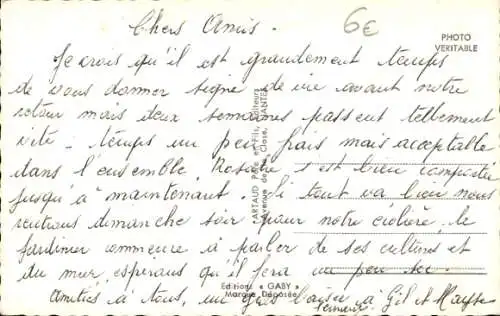 Chers Amis.
6€
PHOTO
VERITABLE
Je crois qu'il est grandement temps
de vous donner signe de vie avant notre
retour mais deux semaines passent tellement
vite. temps un peu frais mais acceptable
dans l'ensemble, s'est bien comportée
jusqu'à "maintenant". Si tout va bien nous
rentrons dimanche soir pour notre le
jardinier commence à parler de ses cultures et
du mur, espérons qu'il fera un peu sec.
Amitiés à tous, un gros baiser à Gil et
ARTAUD Père et Fils, Éditeurs
Avenue de la Close, NANTES
Editions « GABY »
Marque Déposée